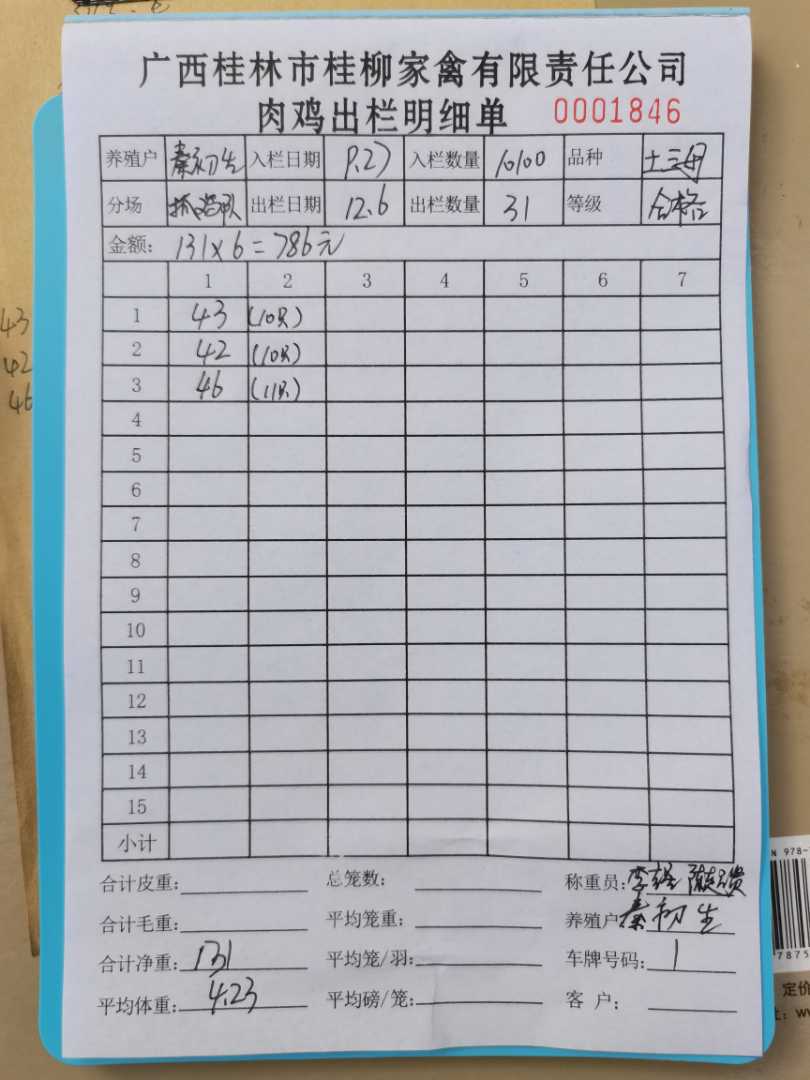 广西桂林市桂柳家禽有限责任公司
肉鸡出栏明细单 0001846
养殖户 秦初生 入栏日期 9.27 入栏数量 10100 品种 土三号
分场 出栏日期 12.6 出栏数量 31 等级 合格
金额: 131×6=786元
1 2 3 4 5 6 7
1 43 (10只)
2 42 (10只)
3 46 (11只)
4
5
6
7
8
9
10
11
12
13
14
15
小计
合计皮重: 总笼数: 称重员:
合计毛重: 平均笼重: 养殖户: 秦初生
合计净重: 131 平均笼/羽: 车牌号码: 1
平均体重: 4.23 平均磅/笼: 客户:
43
42
46
N 978-
7875
定价